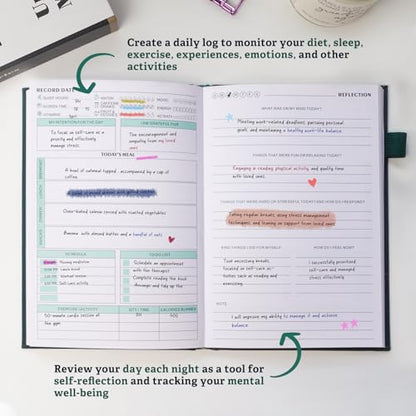 Create a daily log to monitor your diet, sleep,
exercise, experiences, emotions, and other
activities
RECORD DATE
SLEEP HOURS
WATER
MOOD
WORKING TIME
CAFFEINE
ENERGY
VITAMINS
MY INTENTION FOR THE DAY
I AM GRATEFUL FOR
To focus on self-care as a
priority and effectively
manage stress.
The encouragement
and empathy from my loved
ones
TODAY'S MEAL
BREAKFAST
A bowl of oatmeal topped accompanied by a cup of
coffee.
LUNCH
DINNER
Oven-baked salmon served with roasted vegetables
SNACKS
Banana with almond butter and a handful of nuts
SCHEDULE
TO DO LIST
Morning meditation
Lunch break
Self-care activity
Schedule an appointment
with the therapist
Complete reading the book
Arrange and tidy up the
EXERCISE / ACTIVITY
QTY / TIME
CALORIES BURNED
30-minute cardio session at
the gym
REFLECTION
WHAT WAS GREAT ABOUT TODAY?
Meeting work-related deadlines, pursuing personal
goals, and maintaining a healthy work-life balance.
THINGS THAT WERE FUN OR RELAXING TODAY?
Engaging in relaxing physical activity and quality time
with loved ones.
THINGS THAT WERE HARD OR STRESSFUL TODAY AND HOW DID I RESPOND?
Taking regular breaks, using stress management
techniques, and leaning on support from loved ones
KIND THINGS I DID FOR MYSELF:
HOW DO I FEEL NOW?
Took necessary breaks,
focused on self-care ac-
tivities such as reading and
exercising.
I successfully prioritized
self-care and managed
stress effectively.
NOTE
I will improve my ability to manage it and achieve
balance.
Review your day each night as a tool for
self-reflection and tracking your mental
well-being